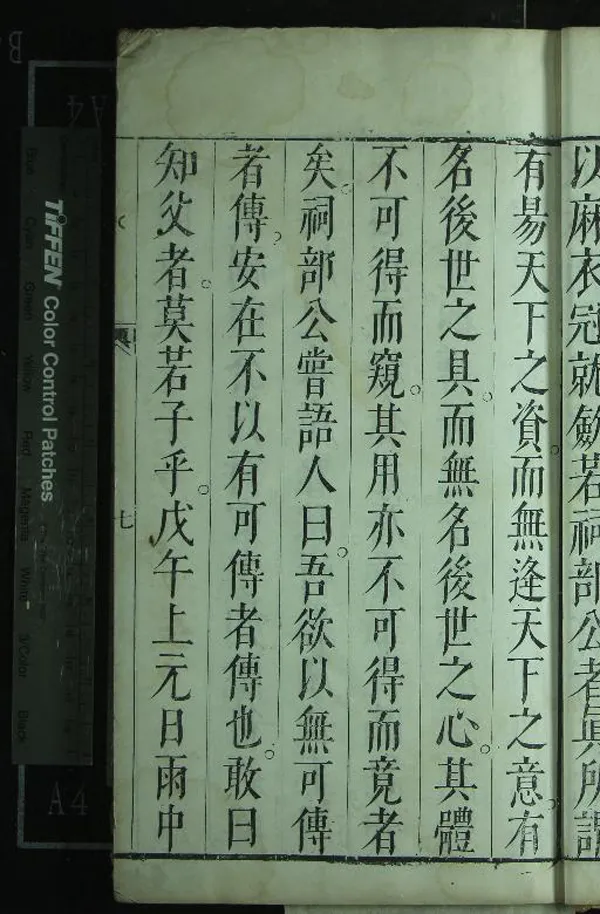 以麻衣冠就斂若祠部公者眞所謂
有昜天下之資而無逢天下之意有
名後世之具而無名後世之心其體
不可得而窺其用亦不可得而竟者
矣祠部公嘗語人曰吾欲以無可傳
者傳安在不以有可傳者傳也敢曰
知父者莫若子乎戊午上元日雨中
七
TIFFEN Color Control Patches
Blue Cyan Green Yellow Red Magenta White 3/Color Black
A4
A4
B